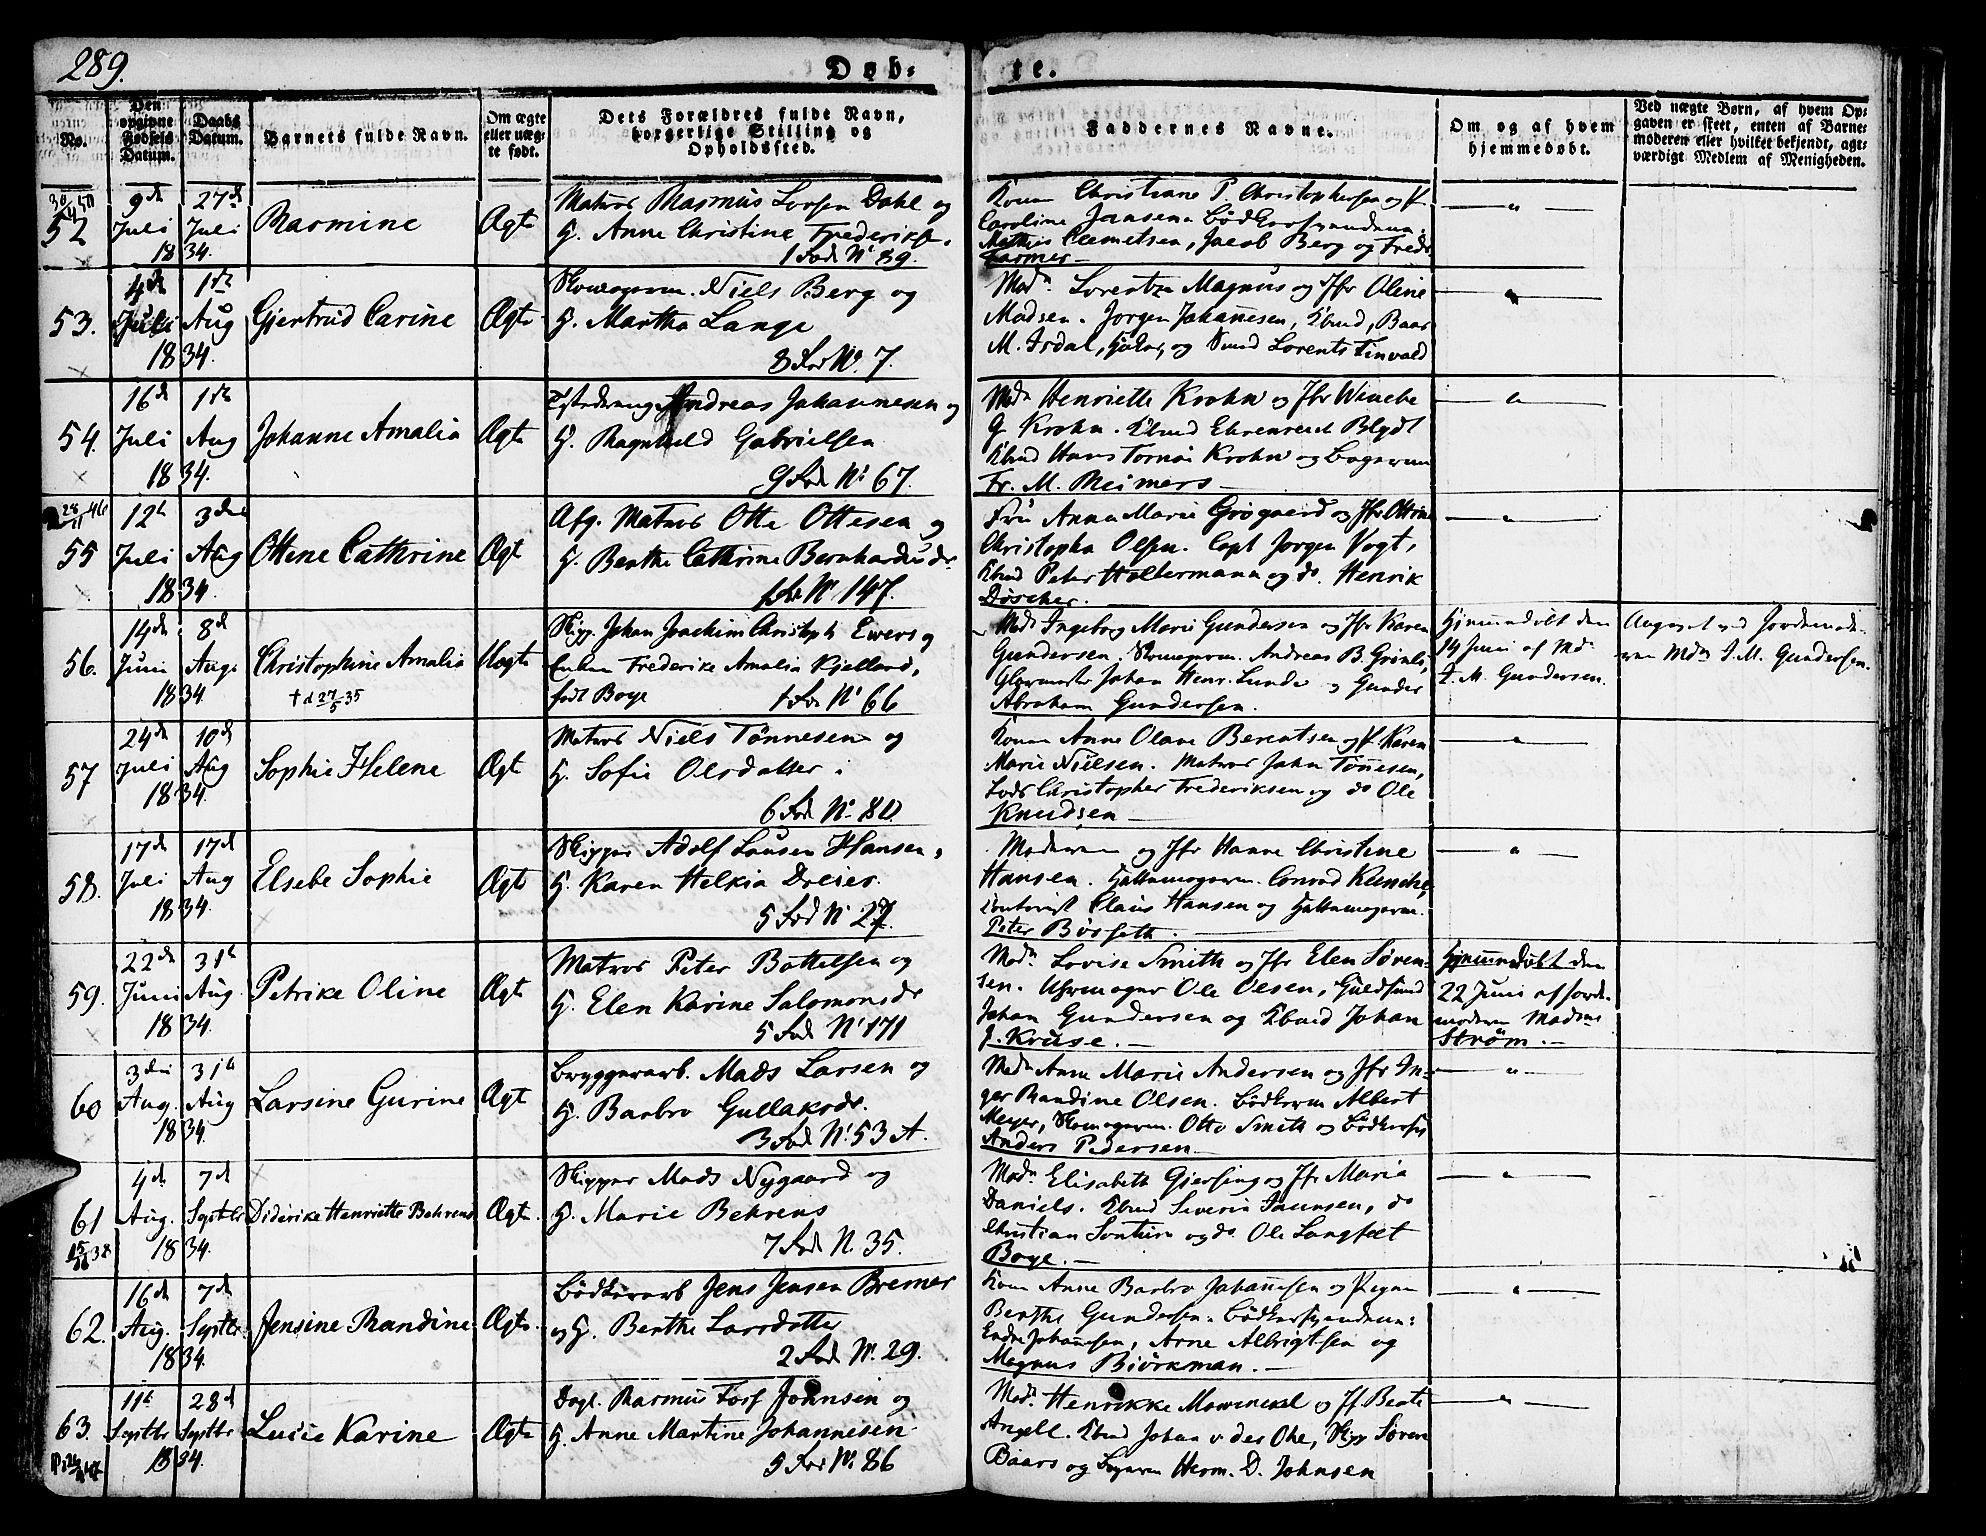 289.
Døb-
te.
No.
Den opgivne Fødsels Datum.
Daabs Datum.
Barnets fulde Navn.
Om ægte eller uægte født.
Dets Forældres fulde Navn, borgerlige Stilling og Opholdssted.
Faddernes Navne.
Om og af hvem hjemmedøbt.
Ved uægte Børn, af hvem Opgaven er skeet, enten af Barnemoderen eller hvilket bekjendt, agtværdigt Medlem af Menigheden.
52
9de Juli
27de Juli
1834.
Rasmine
Ægte
Matros Rasmus Larsen Dahl og
H. Anne Christine Frederiks.
1 Fod No 89.
Kone Christiane P. Christophersen og P.
Caroline Jansen. Bødkersvendene
Mathis Clemetsen, Jacob Berg og Fredr
Farmer
53.
4de Juli
1ste Aug
1834.
Gjertrud Carine
Ægte
Skomagerm. Niels Berg og
H. Martha Lange
8 Fod No. 7.
Mad. Lorentze Magnus og Jfr Oline
Madsen. Jørgen Johannesen, Kbmd, Baar
M. Isdal, Høker, og Svend Lorents Finvald
54.
16de Juli
1ste Aug
1834.
Johanne Amalia
Ægte
Andreas Johannesen og
H. Ragnhild Gabrielsen
9 Fod No 67.
Mad. Henriette Krohn og Jfr Wencke
G. Krohn. Kbmd Ehrenreich Blydt
Kbmd Hans Tornøe Krohn og Bagerm
Fr. M. Reimers
55
12te Juli
3die Aug
1834.
Ottene Cathrine
Ægte
Afg. Matros Otte Ottesen og
H. Berthe Cathrine Bernhardusdr.
No. 147.
Fru Anna Marie Grøgaard og Jfr Ottine
Christopha Olsen. Capt Jørgen Vogt,
Kbmd Peter Holtermann og do. Henrik
Døscher.
56.
14de Juni
8de Aug.
1834
Christophine Amalia
† d 27/5 35
Uægte
Skipp. Johan Joachim Christoph Ewers og
Enken Frederike Amalia Kjelland,
født Boye 1 Fod No 66
Mad. Ingeborg Marie Gundersen og Jfr Karen
Gundersen. Skomagerm. Andreas B. Grønli,
Glarmester Johan Henr. Lunde og Gunder
Abraham Gundersen.
Hjemmedøbt den
14 Juni af Md
I. M. Gundersen.
Angivet ved Jordemod-
ren Mdm I. M. Gundersen.
57
24de Juli
10de Aug
1834.
Sophie Helene
Ægte
Matros Niels Tønnesen og
H. Sofie Olsdatter
6 Fod No. 80.
Kone Anne Olane Berentsen og P. Karen
Marie Nielsen. Matros John Tønnesen,
Lods Christopher Frederiksen og do Ole
Knudsen
58.
17de Juli
17de Aug
1834.
Elsebe Sophie
Ægte
Skipper Adolf Lausen Hansen,
H. Karen Helkia Dreier.
5 Fod No 27.
Moderen og Jfr Hanne Christine
Hansen. Hattemagerm. Conrad Kuncke,
Contorist Claus Hansen og Hattemagerm.
Peter Børseth.
59.
22de Juni
31te Aug.
1834.
Petrike Oline
Ægte
Matros Peter Bottelsen og
H. Elen Karine Salomonsdr
5 Fod No 171
Mad. Lovise Smith og Jfr Elen Søren-
sen. Uhrmager Ole Olsen, Guldsmd
Johan Gundersen og Kbmd Johan
J. Kruse.
Hjemmedøbt den
22 Juni af Jorde-
moderen Madme
Strøm.
60
3die Aug.
31te Aug
1834.
Larsine Gurine
Ægte
Bryggerarb. Mads Larsen og
H. Barbro Gullaksdr.
3 Fod No. 53 A.
Mad. Anne Marie Andersen og Jfr In-
ger Randine Olsen. Bødkerm Albert
Meyer, Skomagerm. Otto Smith og Bødkersv
Anders Pedersen
61
15/11 38
4de Aug.
7de Septbr
1834.
Diderike Henriette Behrens
Ægte.
Skipper Mads Nygaard og
H. Marie Behrens
7 Fod No. 35.
Mad. Elisabeth Gjersing og Jfr Maria
Daniels. Kbmd Severin Jaunsen, do
Christian Sontum og do. Ole Langfeet
Boye.
62.
16de Aug.
7de Septbr
1834.
Jensine Randine
Ægte.
Bødkerarb Jens Jensen Bremer
og H. Berthe Larsdatter
2 Fod No. 29.
Kone Anne Barbro Johannesen og Pigen
Berthe Gundersen. Bødkersvendene:
Endre Johannesen, Arne Albrigtsen og
Magnus Biörkman.
63.
11te Septbr
28de Septbr
1834.
Lucie Karine
Ægte
Dagl. Rasmus Tosf Johnsen og
H. Anne Martine Johannesen
5 Fod No 86
Mad. Henrikke Mowinckel og Jf. Beate
Angell. Kbmd Johan v der Ohe, Skipp Søren
Baars og Herm. D. Johnsen